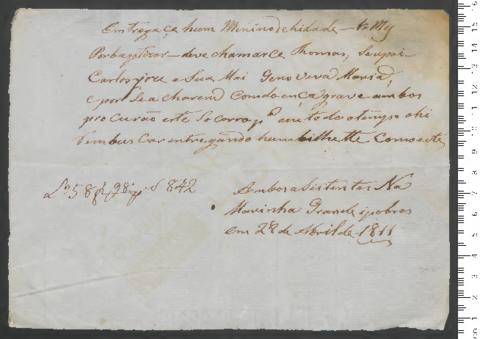 Entrega ça hum Menino de hidade
Por bap tizar — deve chamarce Thomas, Seu pai
Carlos joze e Sua Mai Genoveva Maria,
e por se acharem Com do ença grave ambos
procurão este Socorro em todo o tempo o hi
bembuscar entregando hum bilhette Como este
L.º 58 f. 98 842
Ambos asistentes Na
Marinha Grande i pobres
em 28 de Abril de 1811